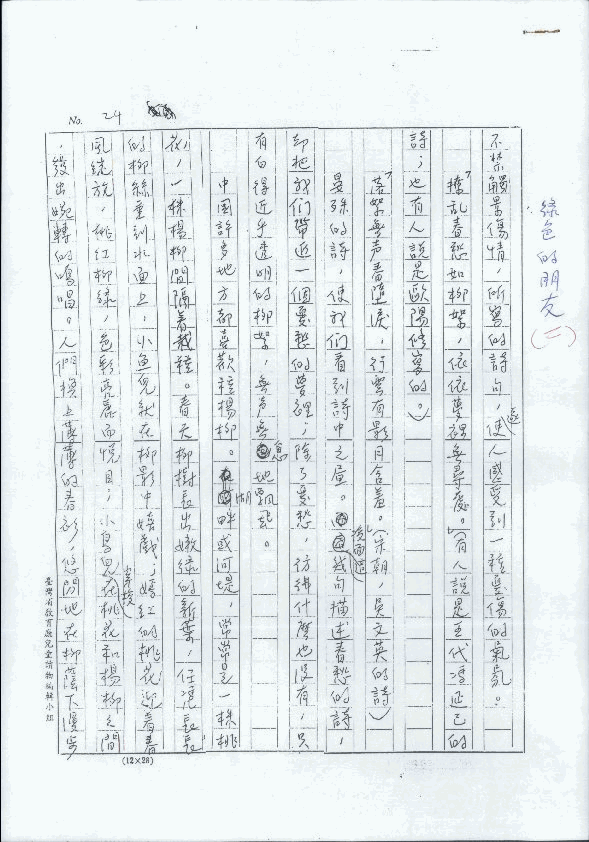 No. 24
綠色的朋友(二)
不禁觸景傷情,所寫的詩句,使人感受到一種憂傷的氣氛。
「撩乱春愁如柳絮,依依夢裡無尋處。」(有人說是五代馮延己的
詩;也有人說是歐陽修寫的。)
「落絮無声春墮淚,行雲有影月含羞。」(宋朝,吳文英的詩)
晏殊的詩,使我們看到詩中之景。後面這幾句描述春愁的詩,
却把我们帶進一個憂愁的夢裡;除了憂愁,彷彿什麼也沒有,只
有白得近乎透明的柳絮,無声無息地飄飛。
中国許多地方都喜歡種楊柳。湖畔或河堤,常常是一株桃
花,一株楊柳間隔着栽種。春天柳樹長出嫩綠的新葉,任憑長長
的柳絲垂到水面上,小魚兒就在柳影中嬉戲;嫣紅的桃花迎着春
風綻放,桃紅柳綠,色彩亮麗而悅目;小鳥兒在桃花和楊柳之間穿梭
,發出婉轉的鳴唱。人們換上薄薄的春衫,悠閒地在柳蔭下漫步
臺灣省教育廳兒童讀物編輯小組
(12×28)